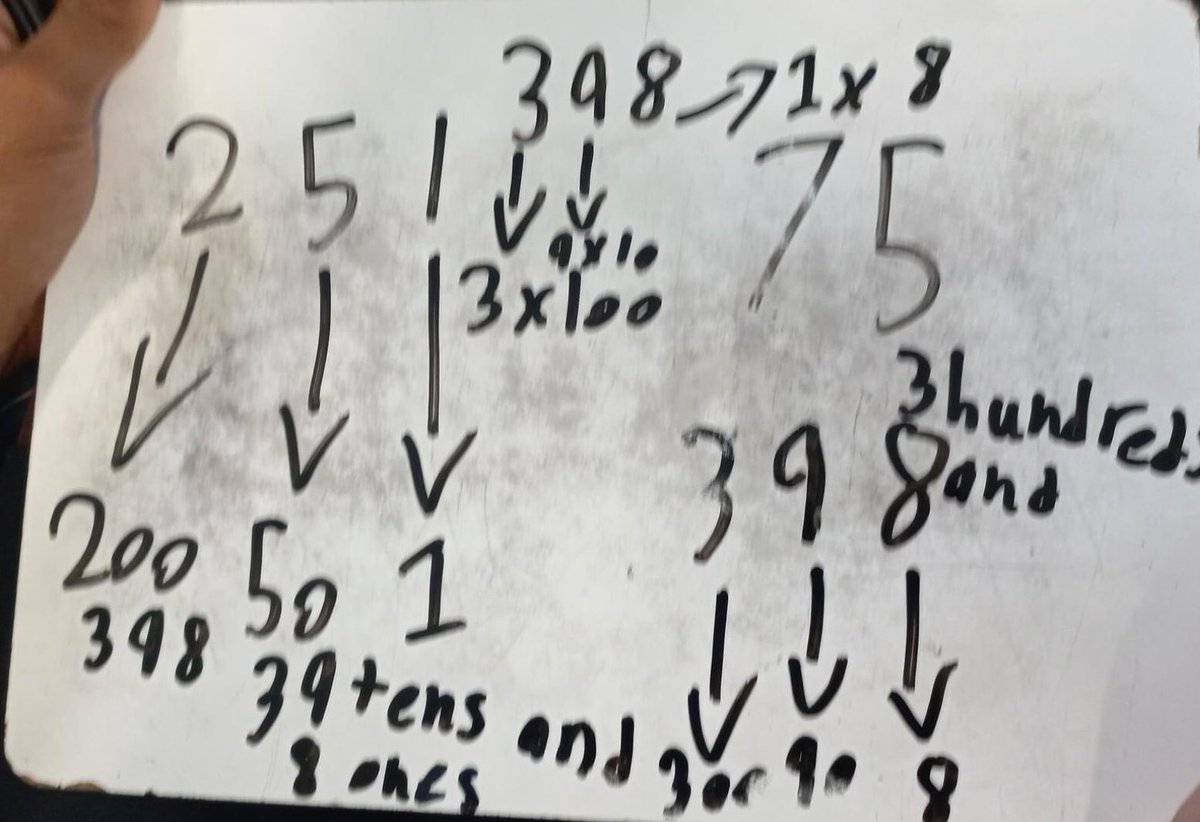 398 → 1 x 8
2 5 1
↓ ↓
9 x 10
3 x 100
7 5
↓ ↓ ↓
200 50 1
3 hundreds
and
3 9 8
↓ ↓ ↓
300 90 8
398
39 tens and
8 ones